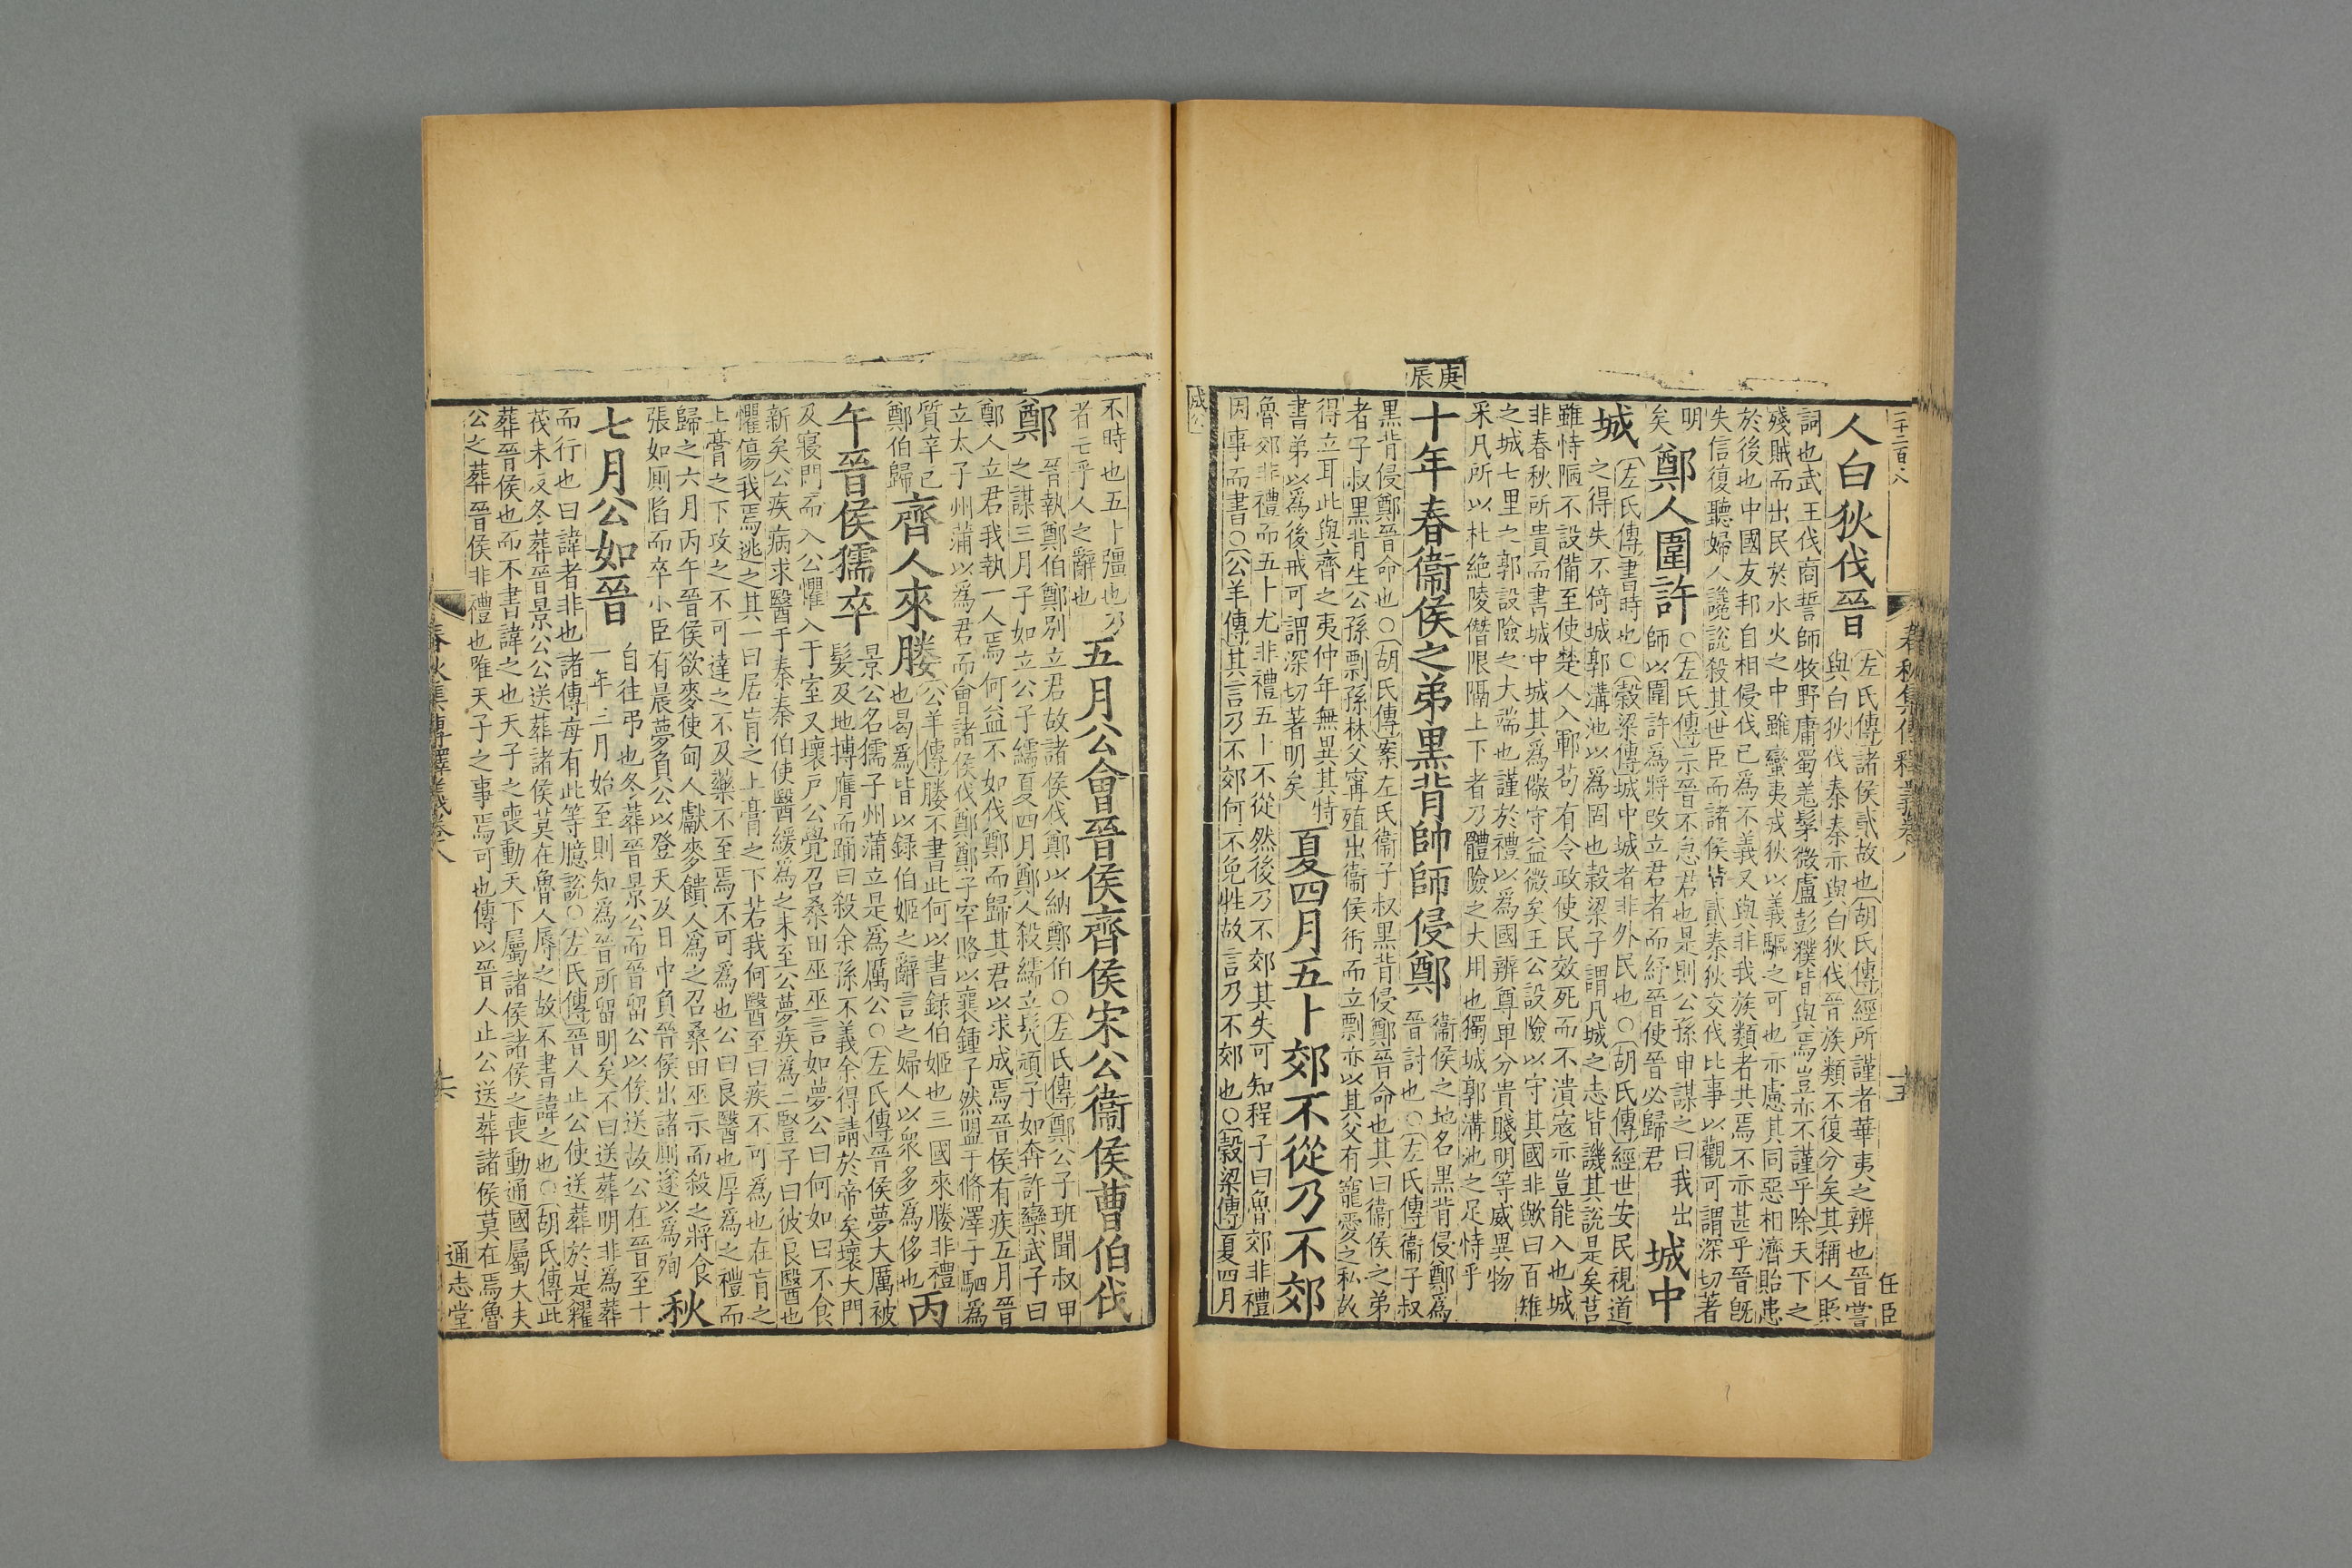 二十二百八
春秋集傳釋義卷八
十五
任臣
人白狄伐晉
左氏傳諸侯貳故也胡氏傳經所謹者華夷之辨也晉嘗
與白狄伐秦秦亦與白狄伐晉族類不復分矣其稱人貶
詞也武王伐商誓師牧野庸蜀羗髳微盧彭濮皆與焉豈亦不謹乎除天下之
殘賊而出民於水火之中雖蠻夷戎狄以義驅之可也亦慮其同惡相濟貽患
於後也中國友邦自相侵伐已為不義又與非我族類者共焉不亦甚乎晉旣
失信復聽婦人讒說殺其世臣而諸侯皆貳秦狄交伐比事以觀可謂深切著
明
矣
鄭人圍許
○左氏傳示晉不急君也是則公孫申謀之曰我出
師以圍許為將改立君者而紓晉使晉必歸君
城中
城
左氏傳書時也○穀梁傳城中城者非外民也○胡氏傳經世安民視道
之得失不倚城郭溝池以為固也穀梁子謂凡城之志皆譏其說是矣莒
雖恃陋不設備至使楚人入鄆苟有令政使民效死而不潰寇亦豈能入也城
非春秋所貴而書城中城其為儆守益微矣王公設險以守其國非歟曰百雉
之城七里之郭設險之大端也謹於禮以為國辨尊卑分貴賤明等威異物
采凡所以杜絶陵僭限隔上下者乃體險之大用也獨城郭溝池之足恃乎
庚辰
十年春衞侯之弟黑背帥師侵鄭
衞侯之地名黑背侵鄭為
晉討也○左氏傳衞子叔
黑背侵鄭晉命也○胡氏傳案左氏衞子叔黑背侵鄭晉命也其曰衞侯之弟
者子叔黑背生公孫剽孫林父甯殖出衞侯衎而立剽亦以其父有寵愛之私故
得立耳此與齊之夷仲年無異其特
書弟以為後戒可謂深切著明矣
夏四月五卜郊不從乃不郊
魯郊非禮而五卜尤非禮五卜不從然後乃不郊其失可知程子曰魯郊非禮
因事而書○公羊傳其言乃不郊何不免牲故言乃不郊也○穀梁傳夏四月
成公
不時也五卜彊也乃
者亡乎人之辭也
五月公會晉侯齊侯宋公衞侯曹伯伐
鄭
晉執鄭伯鄭别立君故諸侯伐鄭以納鄭伯○左氏傳鄭公子班聞叔申
之謀三月子如立公子繻夏四月鄭人殺繻立髠頑子如奔許欒武子曰
鄭人立君我執一人焉何益不如伐鄭而歸其君以求成焉晉侯有疾五月晉
立太子州蒲以為君而會諸侯伐鄭鄭子罕賂以襄鍾子然盟于脩澤子駟為
質辛巳
鄭伯歸
齊人來媵
公羊傳媵不書此何以書録伯姬也三國來媵非禮
也曷為皆以録伯姬之辭言之婦人以衆多為侈也
丙
午晉侯獳卒
景公名獳子州蒲立是為厲公○左氏傳晉侯夢大厲被
髮及地搏膺而踊曰殺余孫不義余得請於帝矣壞大門
及寢門而入公懼入于室又壞戶公覺召桑田巫巫言如夢公曰何如曰不食
新矣公疾病求醫于秦秦伯使醫緩為之未至公夢疾為二豎子曰彼良醫也
懼傷我焉逃之其一曰居肓之上膏之下若我何醫至曰疾不可為也在肓之
上膏之下攻之不可達之不及藥不至焉不可為也公曰良醫也厚為之禮而
歸之六月丙午晉侯欲麥使甸人獻麥饋人為之召桑田巫示而殺之將食
張如厠陷而卒小臣有晨夢負公以登天及日中負晉侯出諸厠遂以為殉
秋
七月公如晉
自往弔也冬葬晉景公而晉留公以俟送故公在晉至十
一年三月始至則知為晉所留明矣不曰送葬明非為葬
而行也曰諱者非也諸傳每有此等臆說○左氏傳晉人止公使送葬於是糴
茷未反冬葬晉景公公送葬諸侯莫在魯人辱之故不書諱之也○胡氏傳此
葬晉侯也而不書諱之也天子之喪動天下屬諸侯諸侯之喪動通國屬大夫
公之葬晉侯非禮也唯天子之事焉可也傳以晉人止公送葬諸侯莫在焉魯
春秋集傳釋義卷八
十六
通志堂